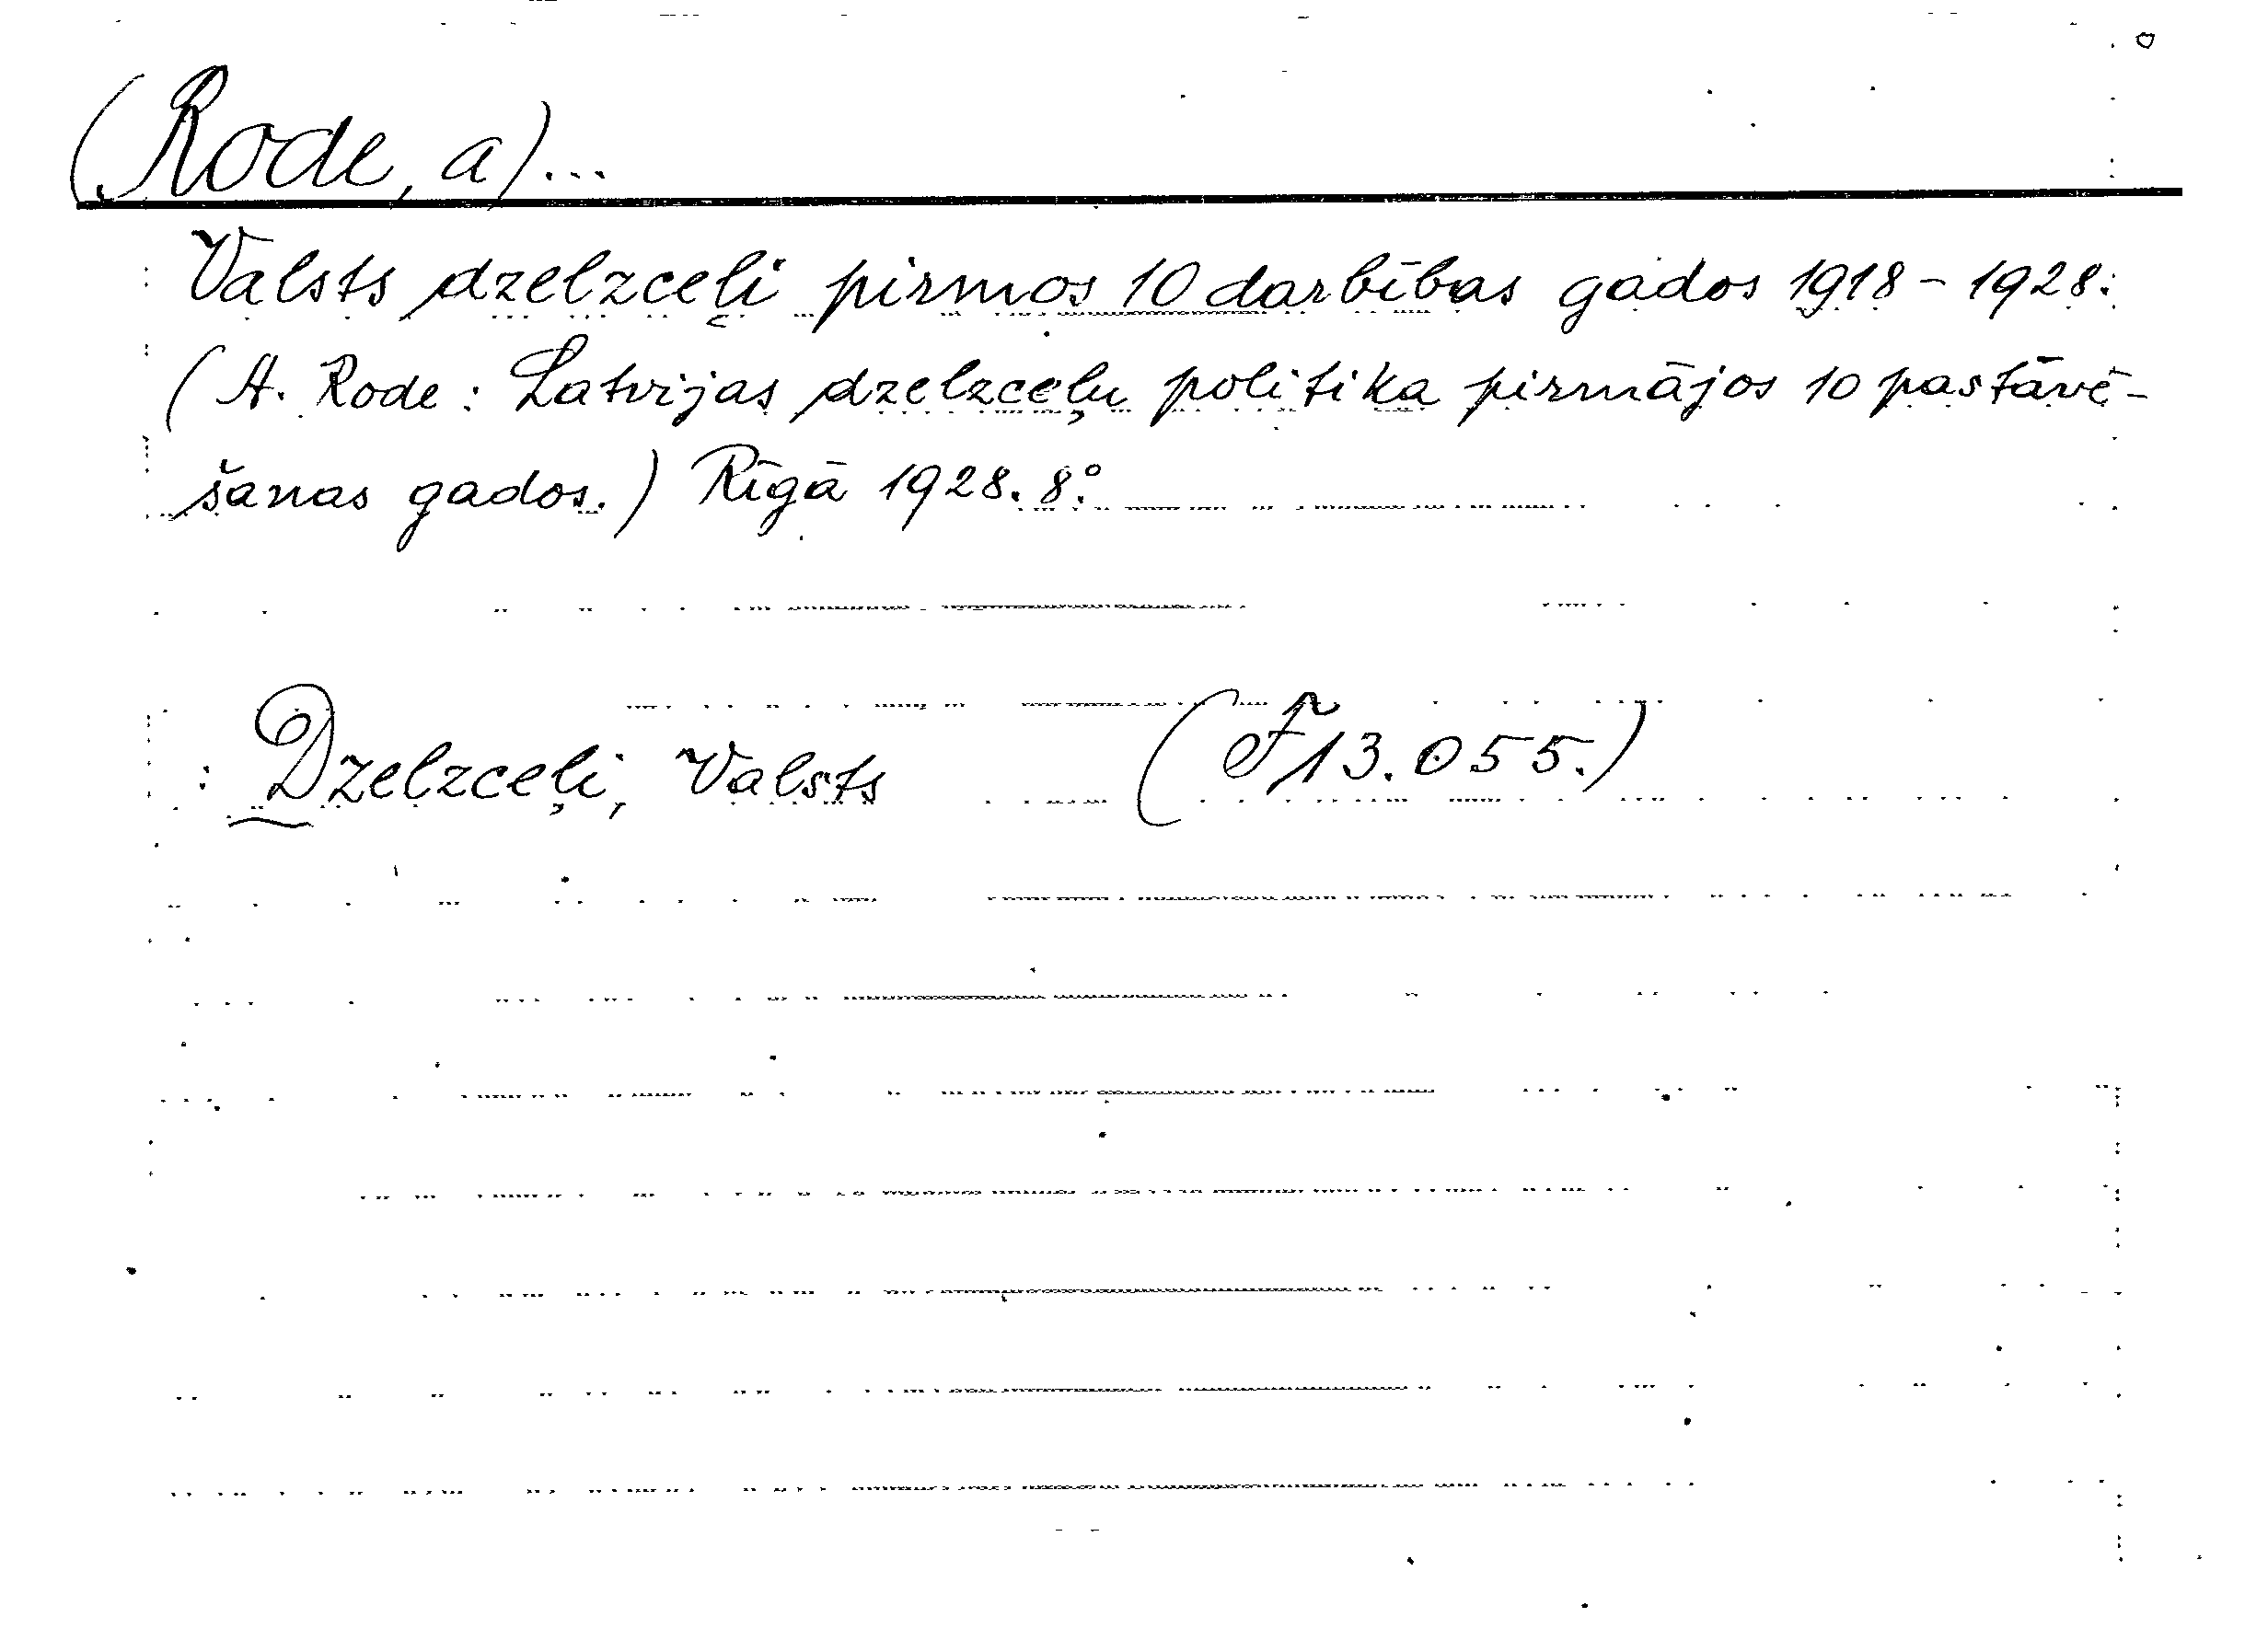 (Rode, a)...
Valsts dzelzceļi pirmos 10 darbības gados 1918-1928.
(A. Rode: Latvijas dzelzceļu politika pirmājos 10 pastāvē-
šanas gados.) Rīgā 1928. 8°.
: Dzelzceļi, Valsts (F13.055.)